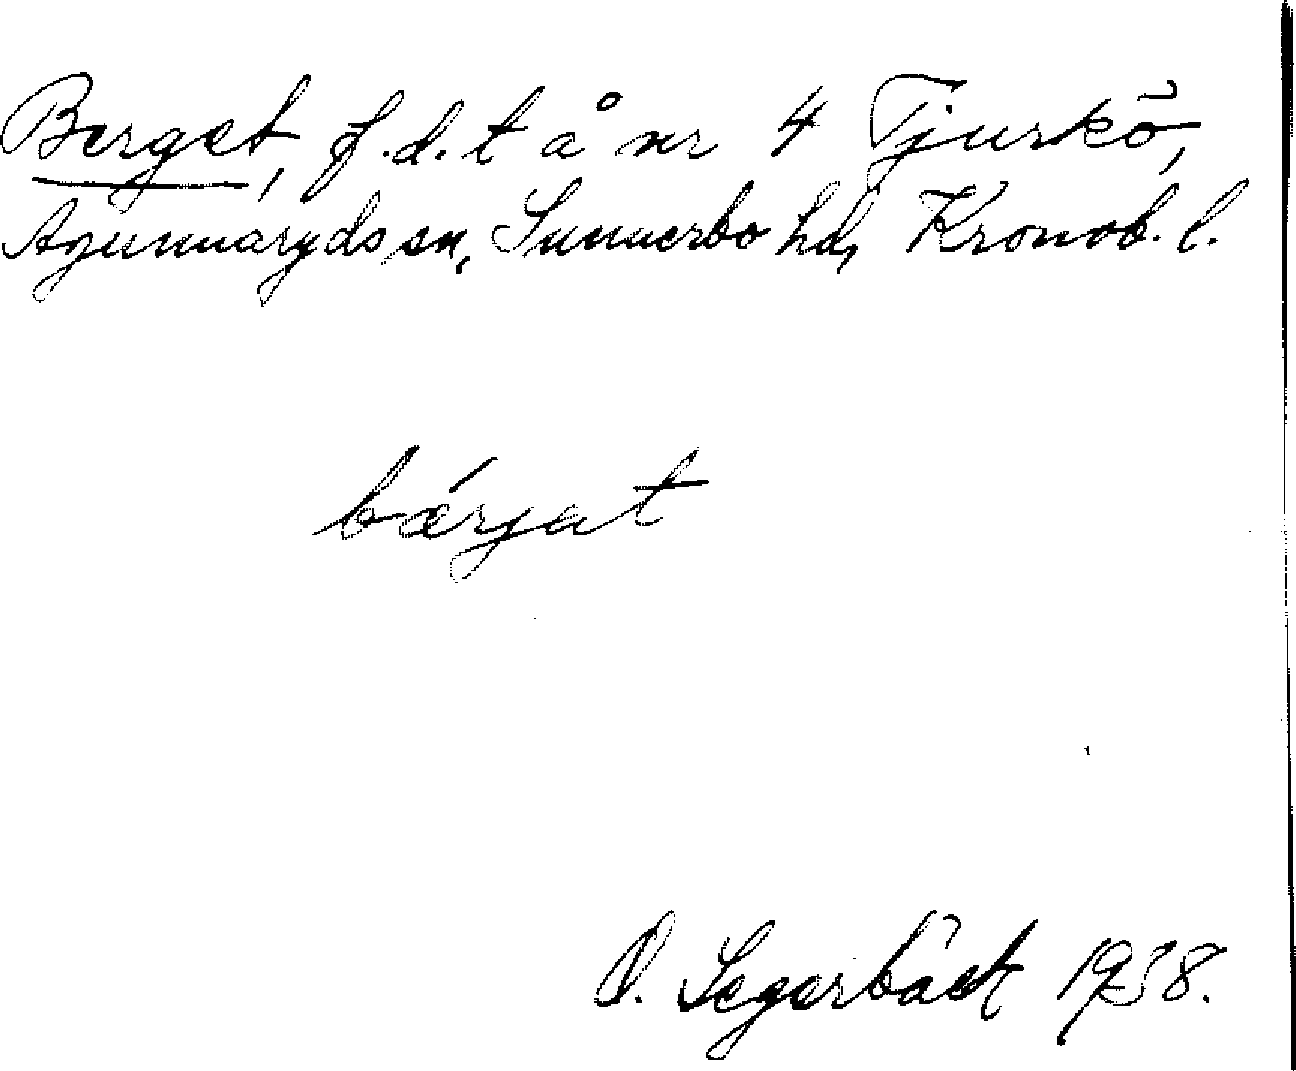 Berget, f.d. t å nr 4 Tjurkö,
Agunnaryds sn, Sunnerbo hd, Kronob. l.
bǽrjat
O. Segerbäck 1938.